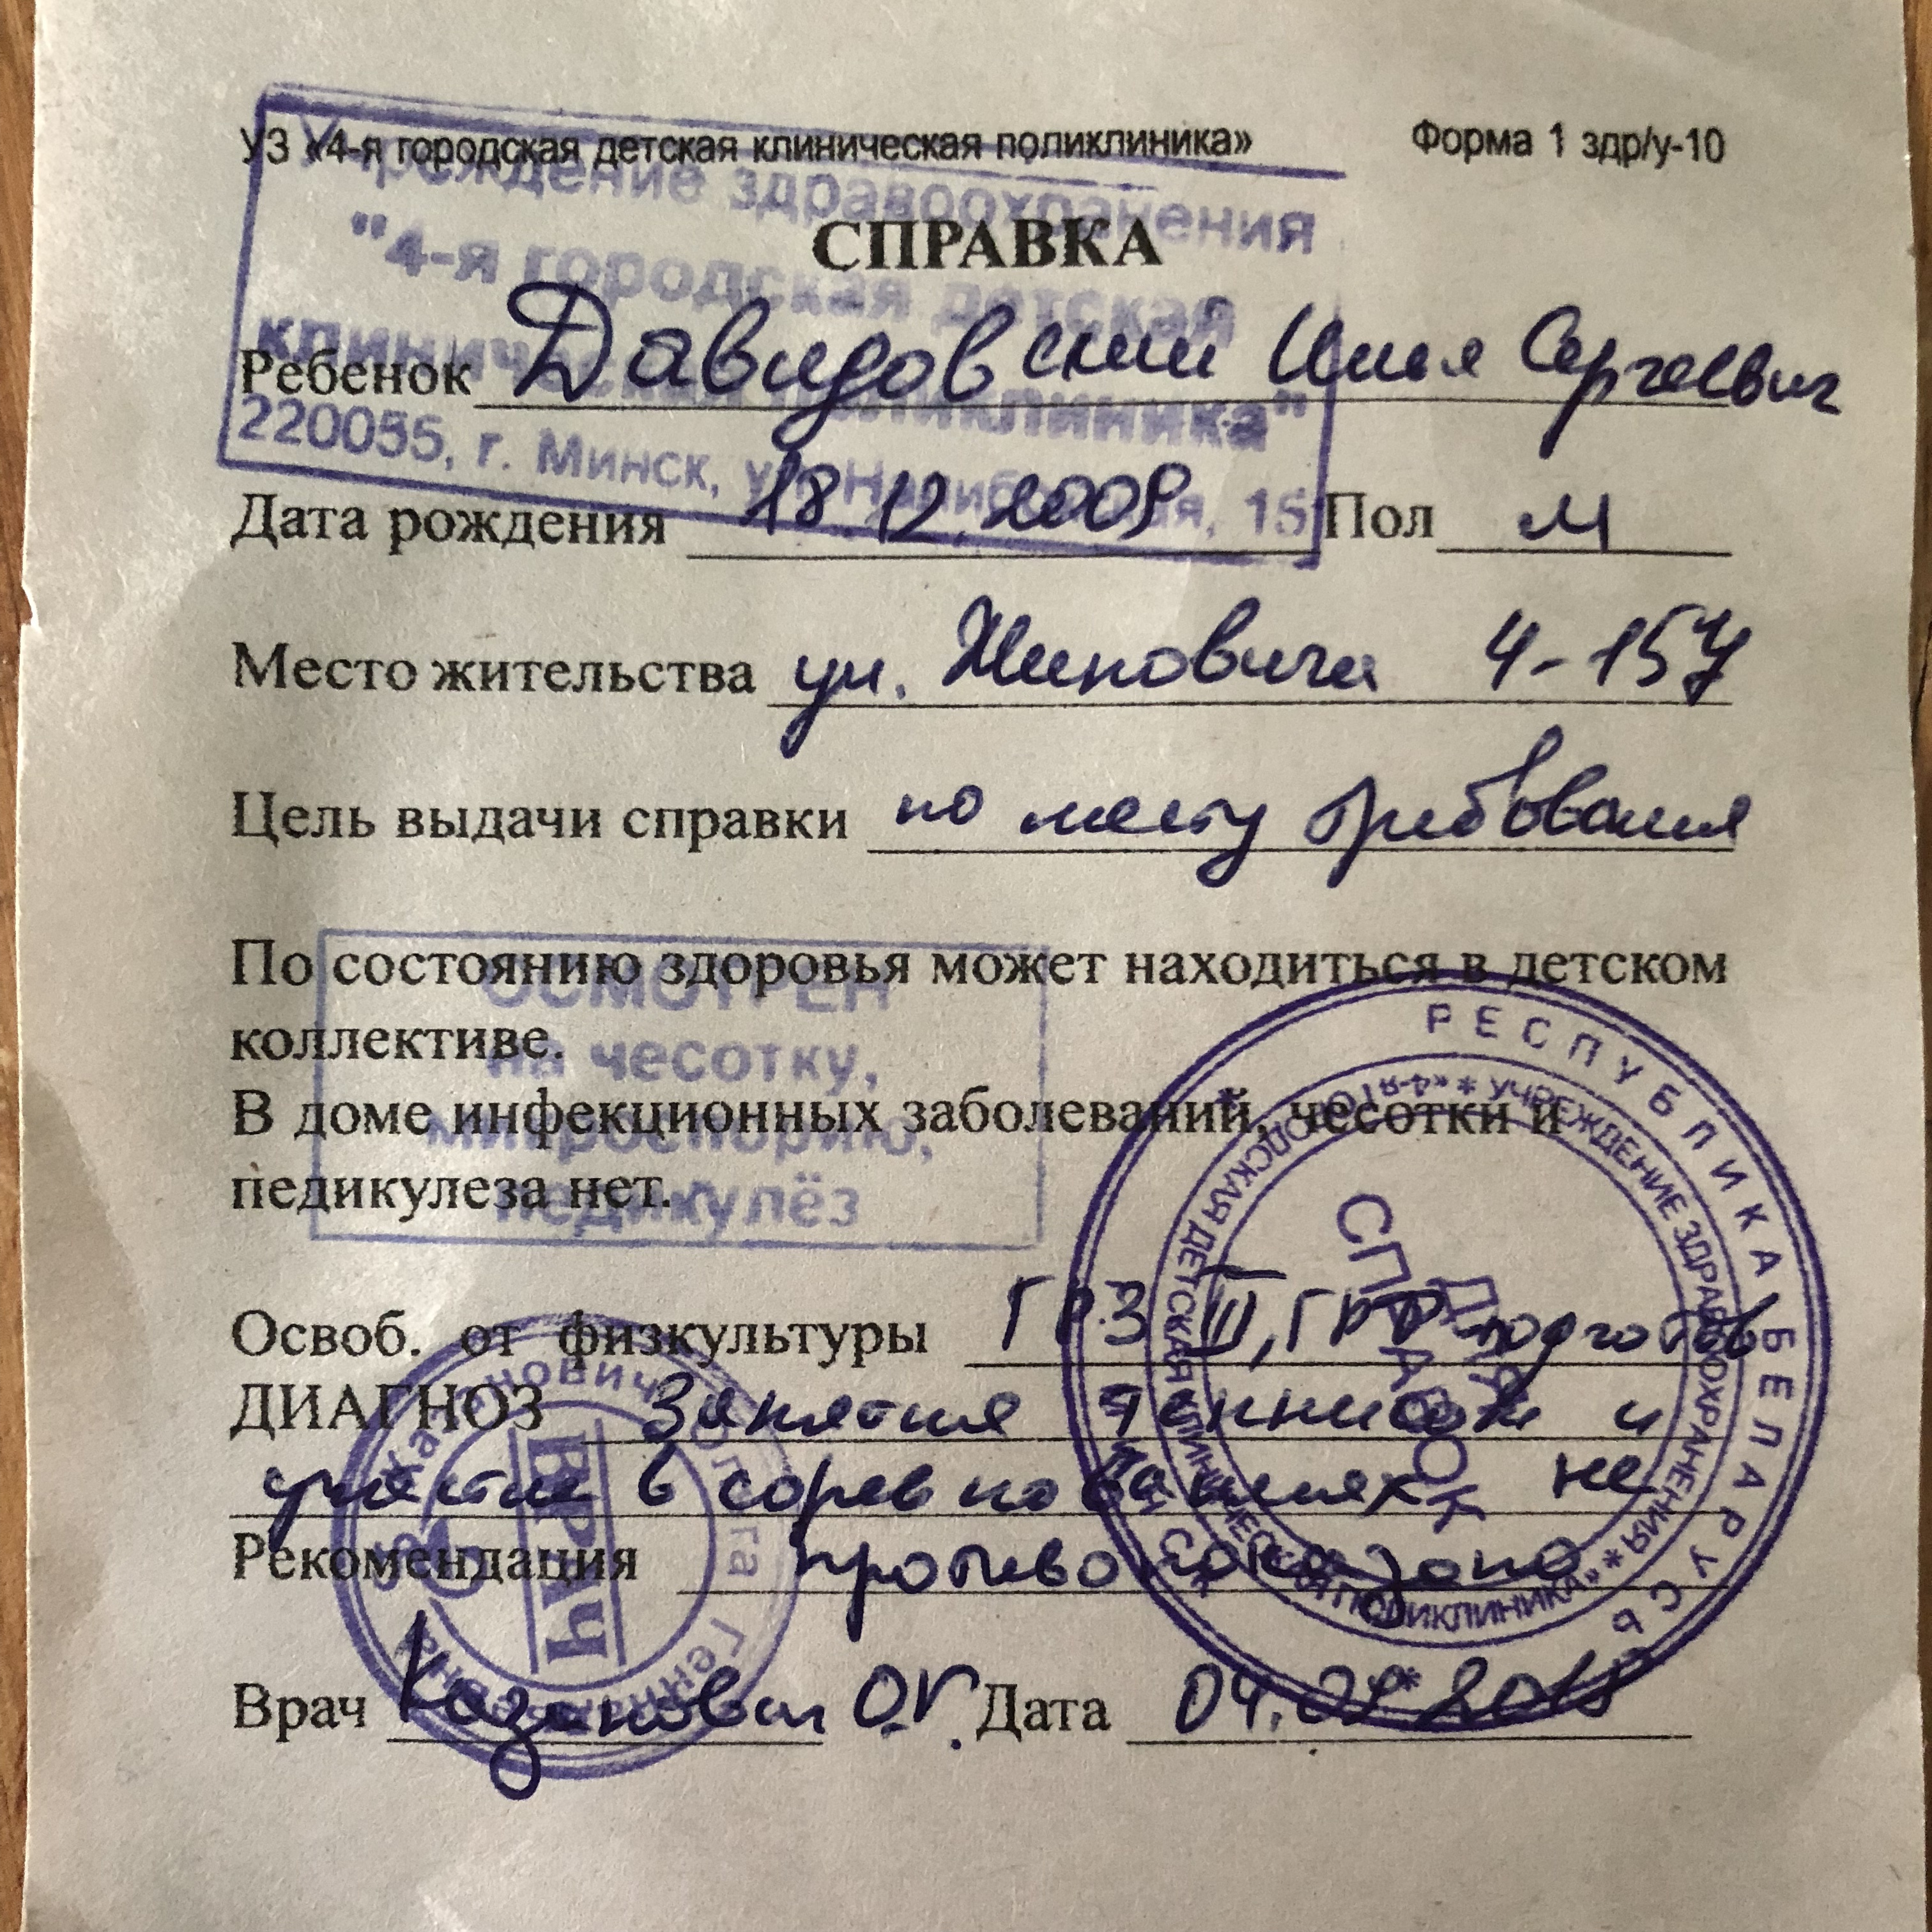 УЗ «4-я городская детская клиническая поликлиника» Форма 1 здр/у-10
Учреждение здравоохранения
"4-я городская детская
клиническая поликлиника"
220055, г. Минск, ул. Налибокская, 15
СПРАВКА
Ребенок Давидовский Илья Сергеевич
Дата рождения 18.12.2009 Пол м
Место жительства ул. 4-157
Цель выдачи справки по месту требования
По состоянию здоровья может находиться в детском
коллективе.
В доме инфекционных заболеваний, чесотки и
педикулеза нет.
ОСМОТРЕН
на чесотку,
микроспорию,
педикулёз
Освоб. от физкультуры ГРЗ III, подготов
ДИАГНОЗ Занятия теннисом и
участие в соревнованиях не
Рекомендация противопоказано
Врач Казанович О.Г. Дата 04.09.
РЕСПУБЛИКА БЕЛАРУСЬ * МИНСК
УЧРЕЖДЕНИЕ ЗДРАВООХРАНЕНИЯ * «4-я ГОРОДСКАЯ ДЕТСКАЯ КЛИНИЧЕСКАЯ ПОЛИКЛИНИКА» *
ДЛЯ
СПРАВОК
Казанович Ольга Геннадьевна
ВРАЧ